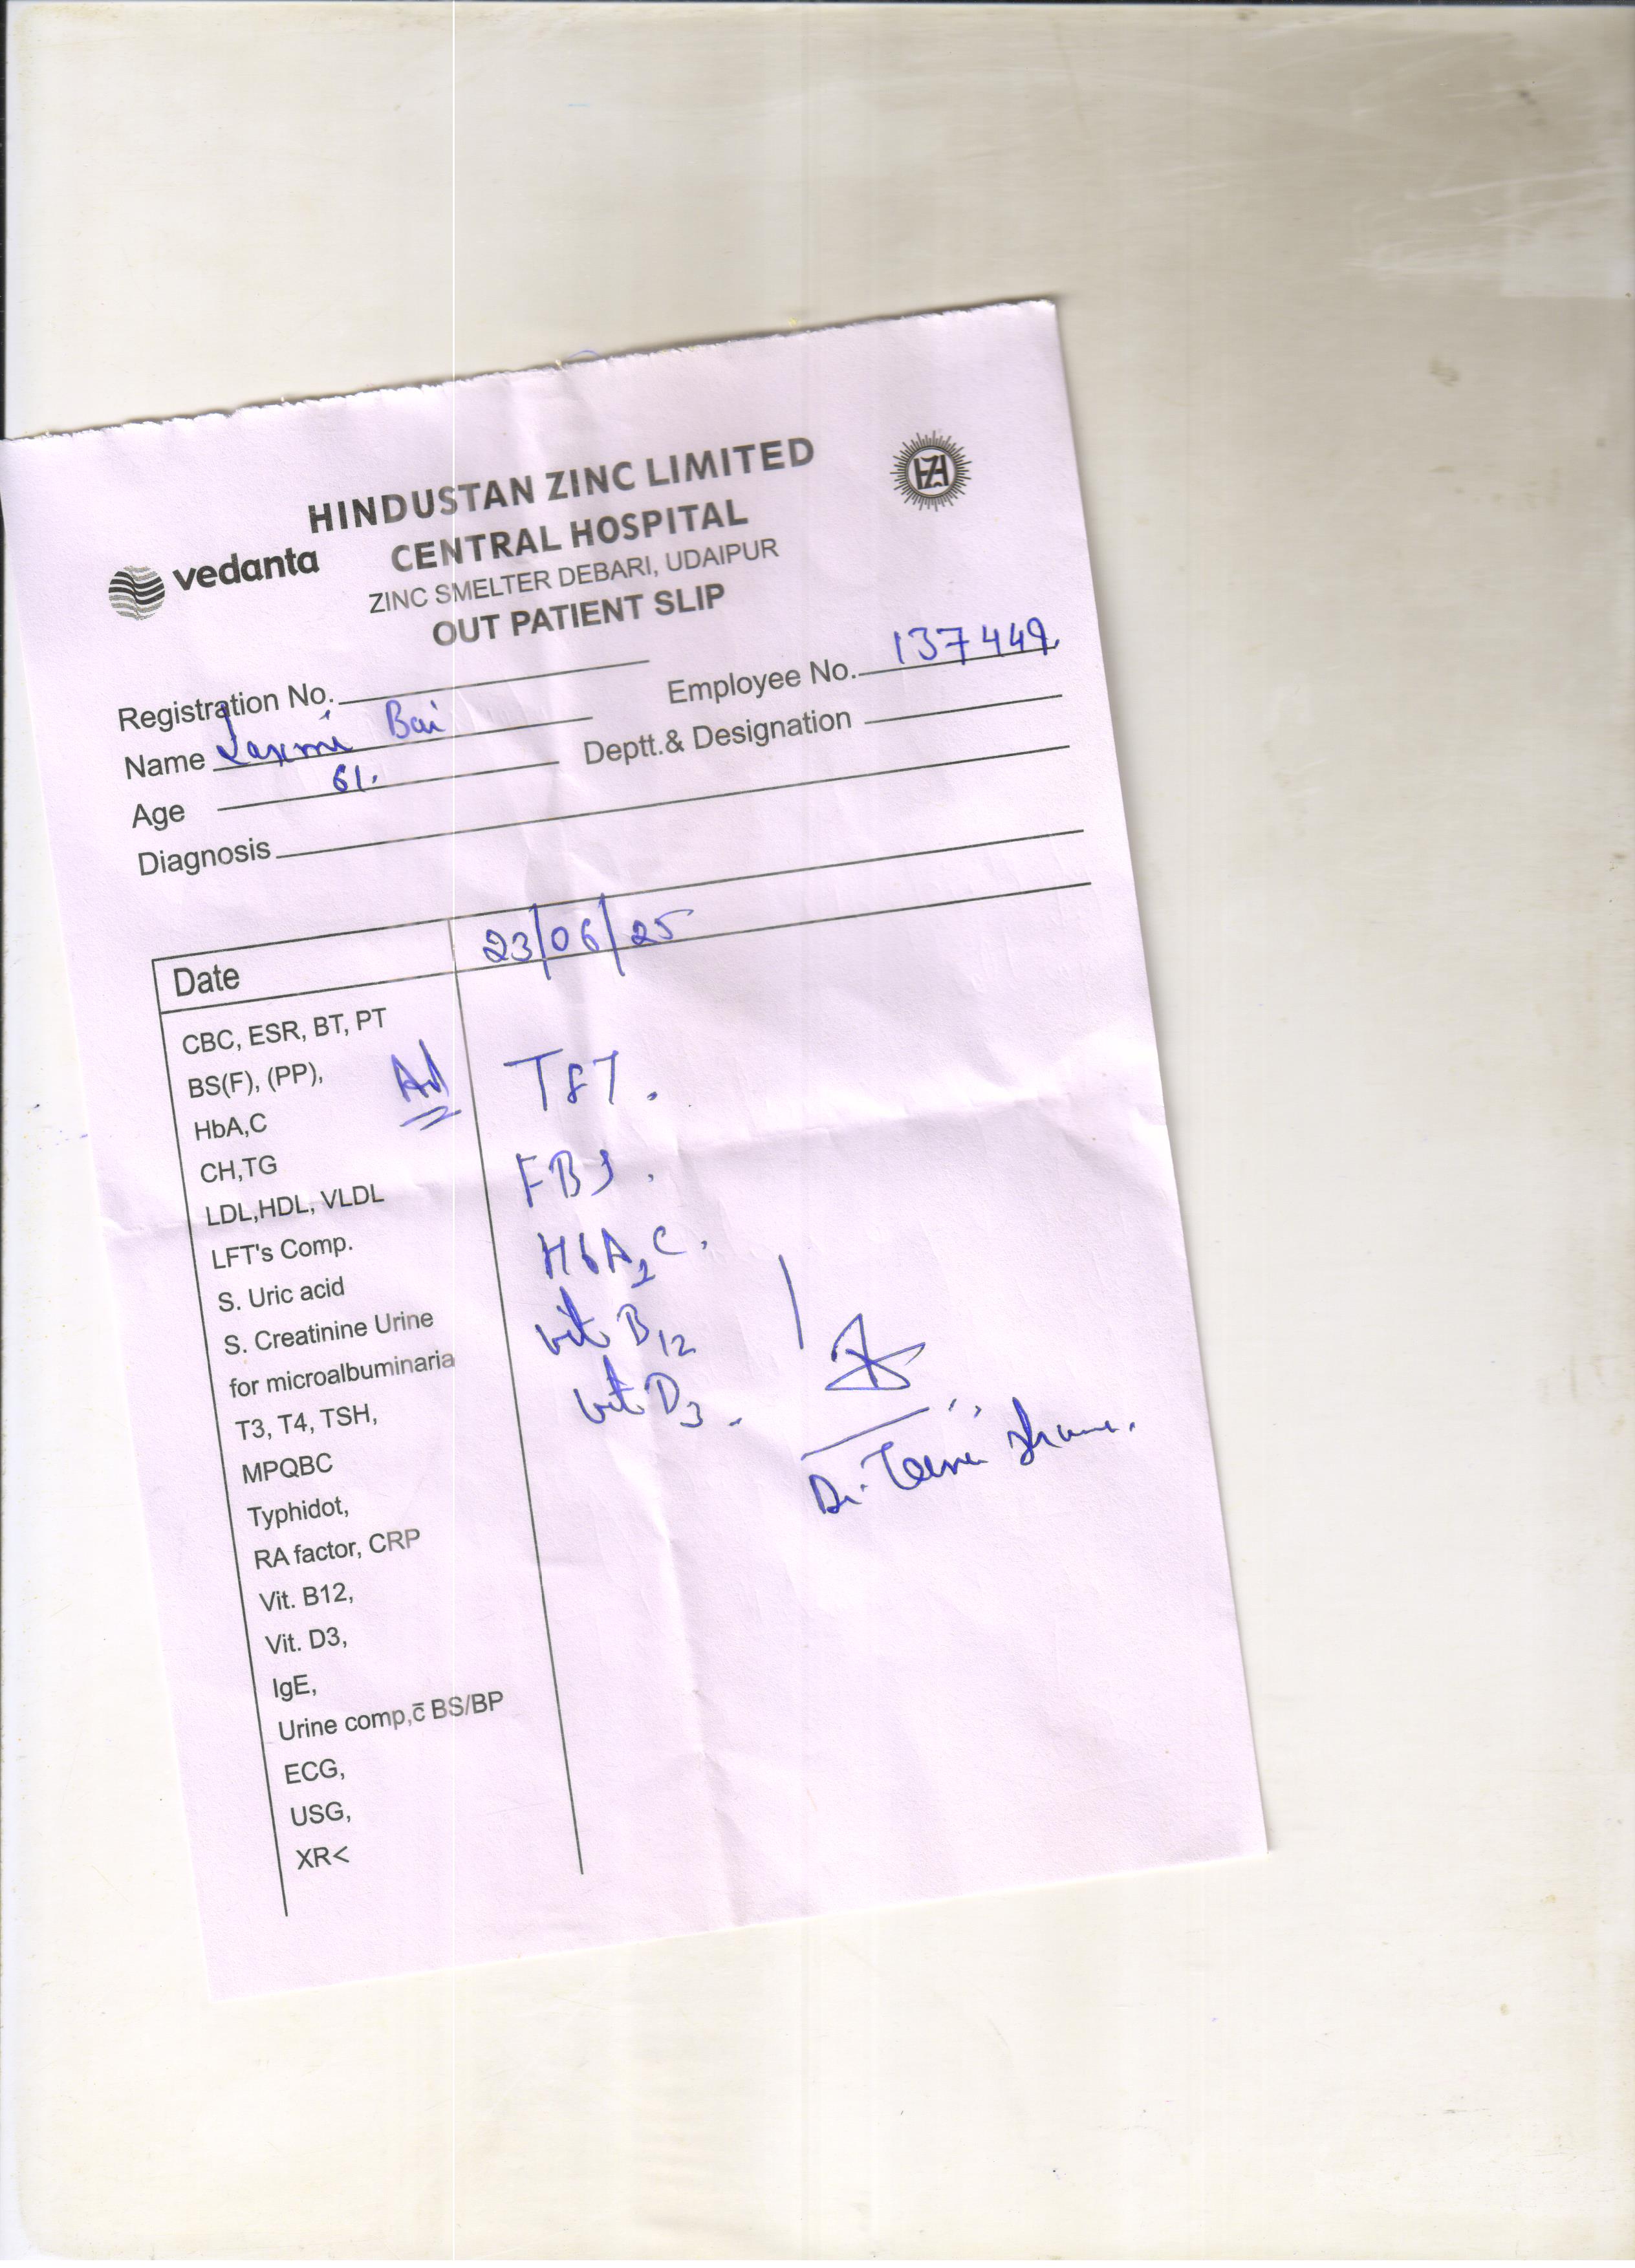 HINDUSTAN ZINC LIMITED
vedanta
CENTRAL HOSPITAL
ZINC SMELTER DEBARI, UDAIPUR
OUT PATIENT SLIP
Registration No.
Employee No. 137449
Name Laxmi Bai
Deptt.& Designation
Age 61.
Diagnosis
Date 23/06/25
CBC, ESR, BT, PT
BS(F), (PP),
Ad
HbA,C
CH,TG
FBS.
LDL,HDL, VLDL
LFT's Comp.
HbA1C.
S. Uric acid
vit B12
S. Creatinine Urine
vit D3.
for microalbuminaria
T3, T4, TSH,
Dr.
MPQBC
Typhidot,
RA factor, CRP
Vit. B12,
Vit. D3,
IgE,
Urine comp,c̄ BS/BP
ECG,
USG,
XR<